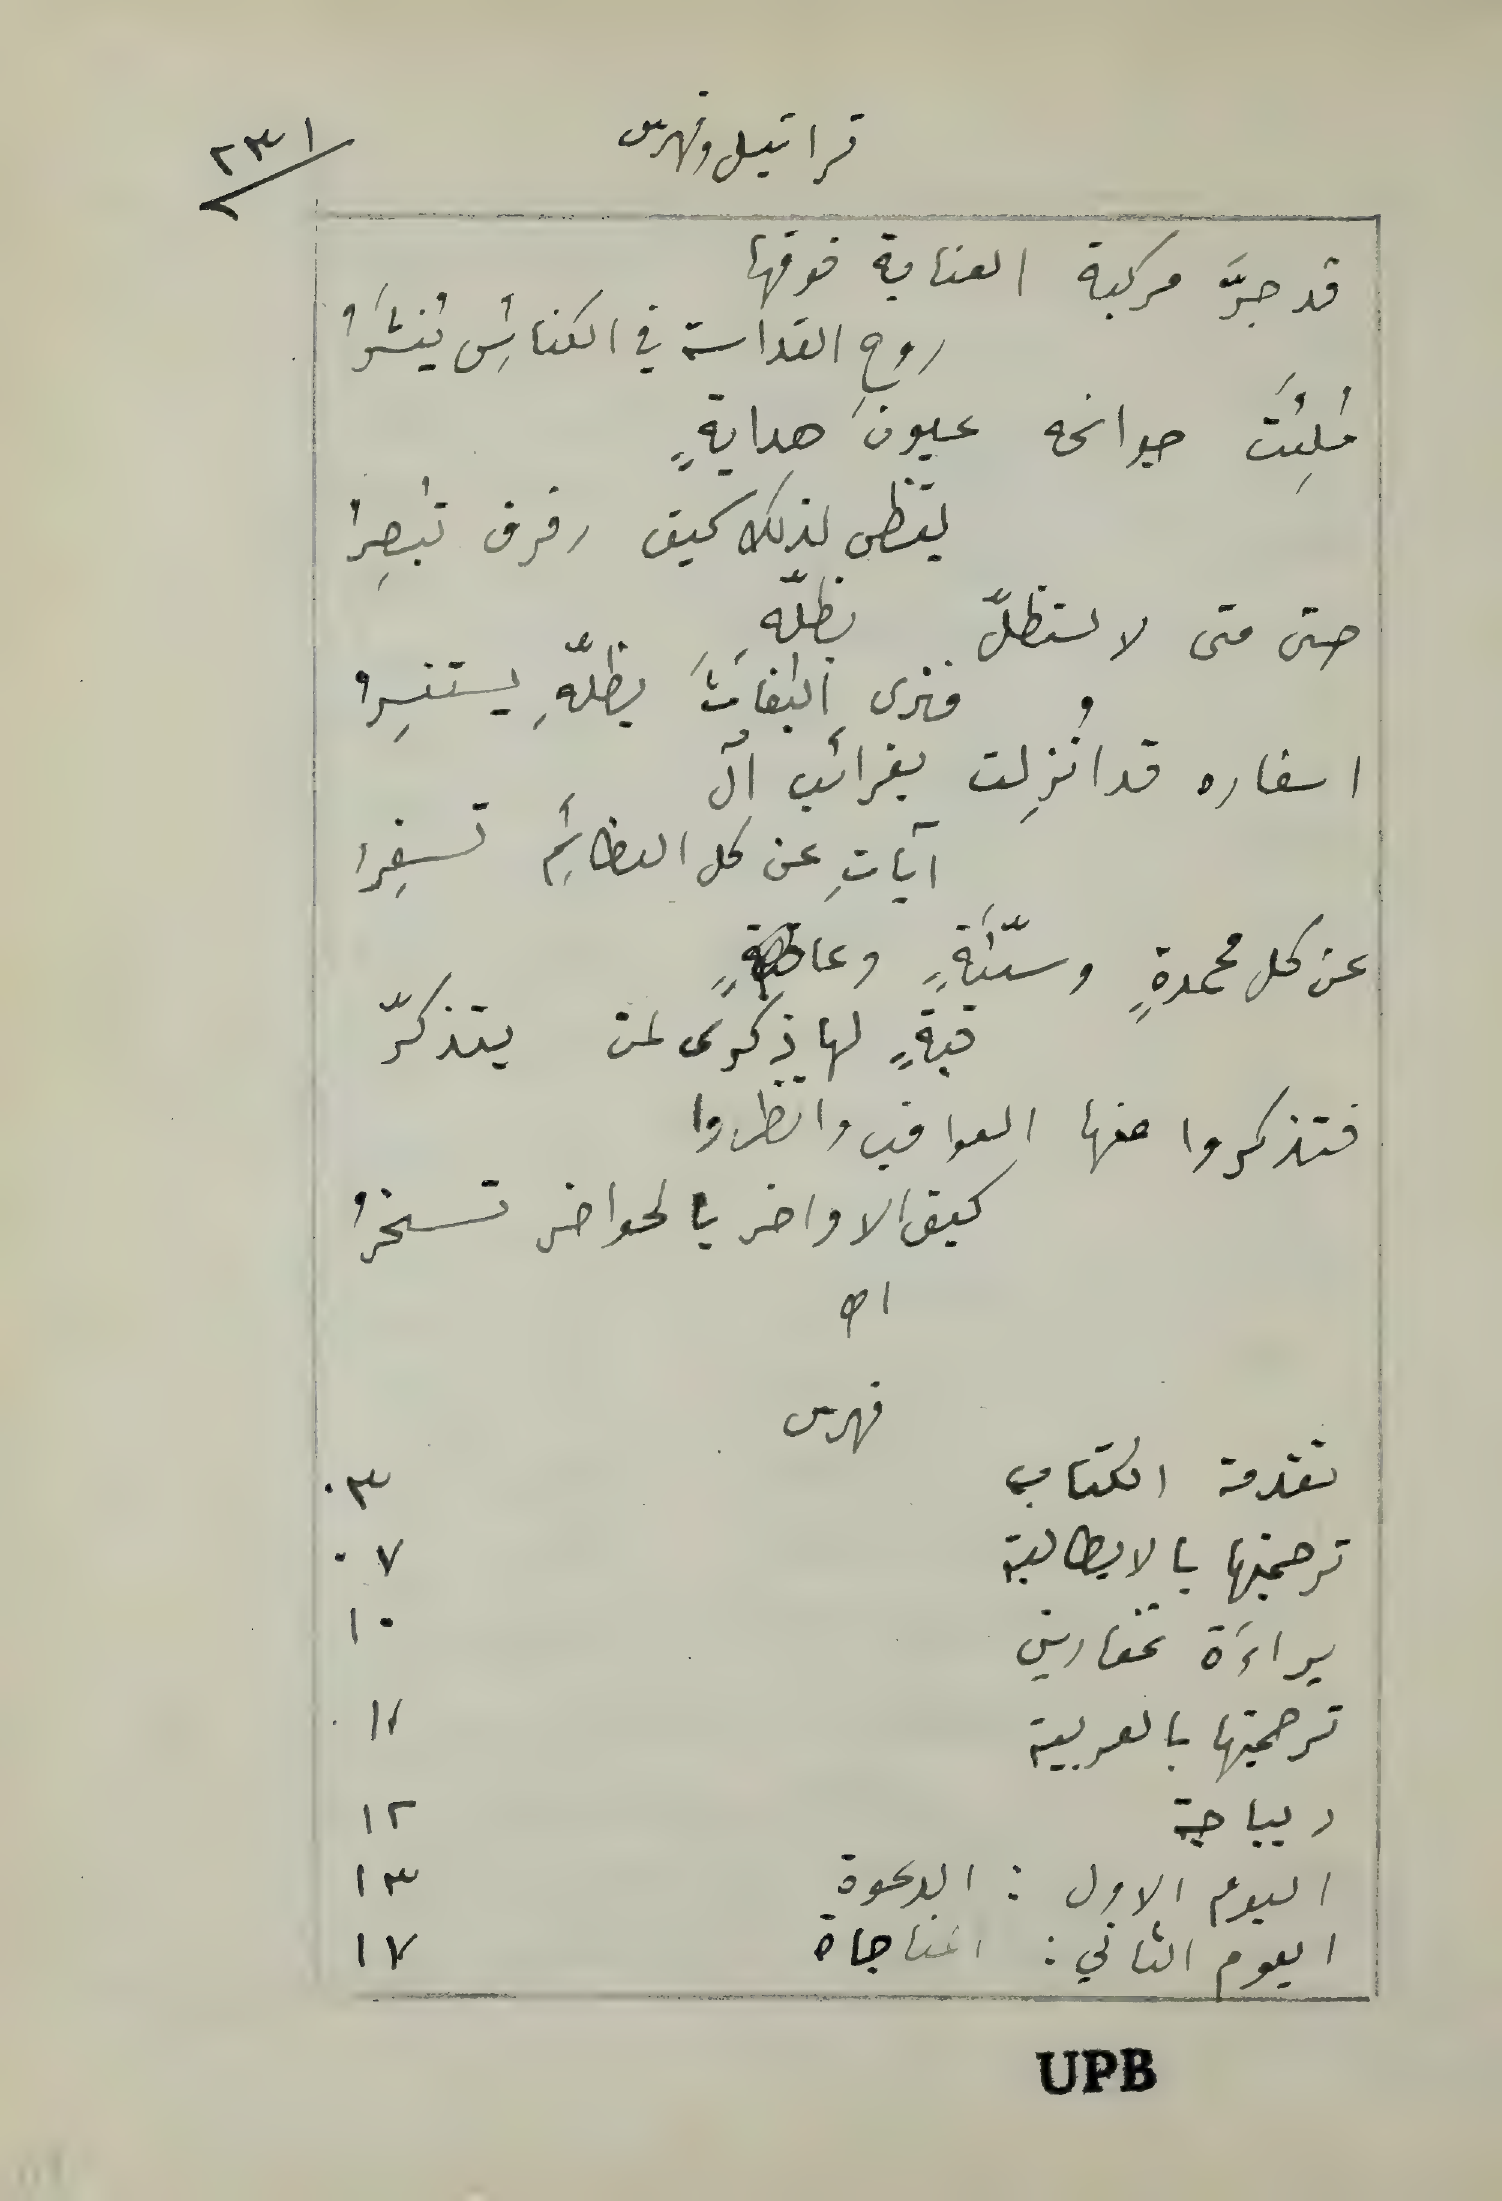 قراتيل وفهرس
٢٣١
قد جرَّ مركبة العناية فوقها
روح القداسة في الكنائسِ يُنشَرُ
مُلِئَت جوانحه عيونَ هدايةٍ
يقظى لذلك كيف رفرف تُبصِرُ
حتى متى لا نستظلّ بظلّهِ
ونرى البغاثَ بظلّهِ يستنسِرُ
اسفاره قد انُزِلت بغرائب آل
آياتِ عن كل العظائمِ تسفِرُ
عن كل محمدةٍ وسيّئَةٍ وعا
قبةٍ لها ذكرى لمن يتذكرّ
فتذكروا منها العواقب وانظروا
كيف الاواخر بالحواضر تسخرُ
اه
فهرس
تقدمة الكتاب ٠٣
ترجمتها بالايطالية ٠٧
براءَة غفارين ١٠
ترجمتها بالعربية ١١
ديباجة ١٢
اليوم الاول : الدعوة ١٣
اليوم الثاني : المناجاة ١٧
UPB